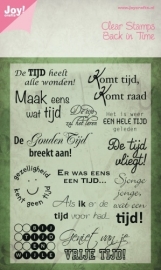 Joy!
Clear Stamps
Back in Time
De TIJD heelt
alle wonden!
Komt tijd,
Komt raad
Maak eens
wat tijd
De tijd
zal het leren
het is weer
EEN HELE TIJD
geleden
De Gouden Tijd
breekt aan!
De tijd
vliegt!
gezelligheid
kent geen tijd
Er was eens
een TIJD...
Sjonge
jonge,
Als ik er de
tijd voor had...
tijd!
Geniet van je
VRIJE TIJD!